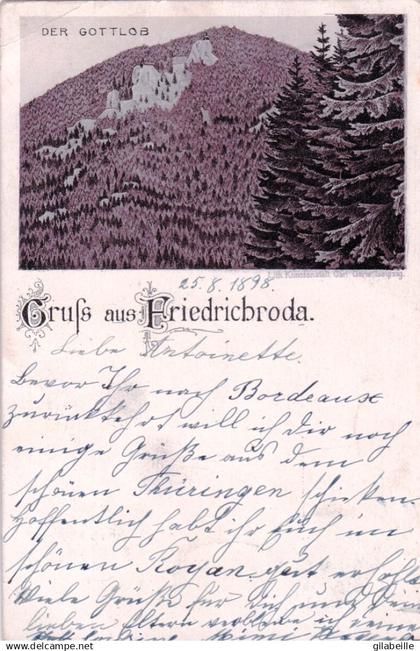 DER GOTTLOB
Lith. Kunstanstalt Carl Garte, Leipzig.
25. 8. 1898.
Gruss aus Friedrichroda.
Liebe Antoinette.
Bevor Ihr nach Bordeaux
zurückkehrt will ich dir noch
einige Grüße aus dem
schönen Thüringen schicken
Hoffentlich habt ihr Euch im
schönen Royan gut erholt
Viele Grüße für Dich und
lieben Eltern
© delcampe.net
gilabeille